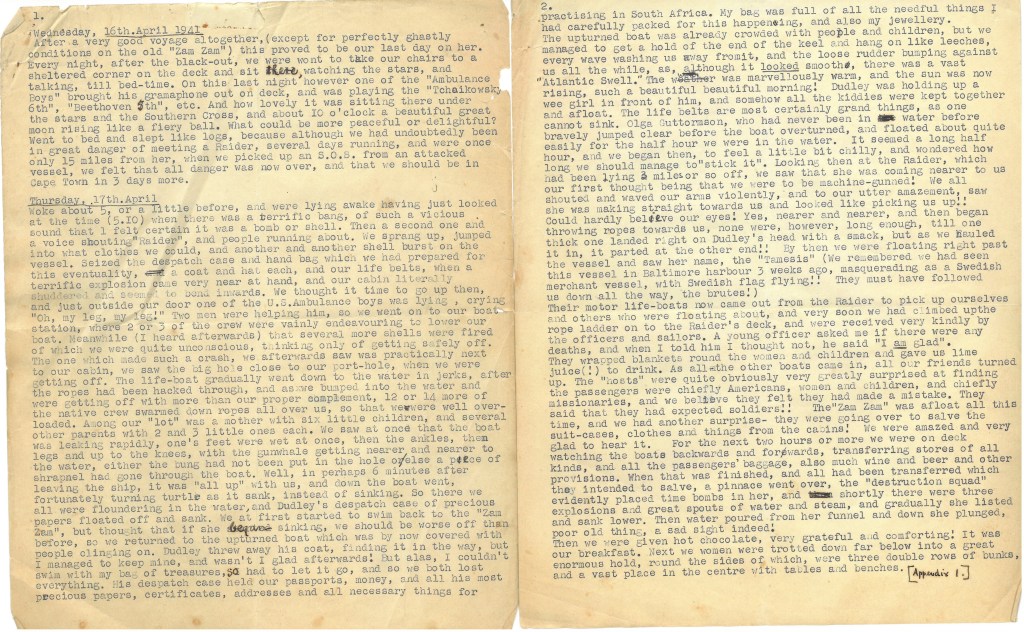 1.
Wednesday, 16th.April 1941
After a very good voyage altogether,(except for perfectly ghastly
conditions on the old "Zam Zam") this proved to be our last day on her.
Every night, after the black-out, we were wont to take our chairs to a
sheltered corner on the deck and sit there, watching the stars, and
talking, till bed-time. On this last night however one of the "Ambulance
Boys" brought his gramaphone out on deck, and was playing the "Tchaikowsky
6th", "Beethoven 5th", etc. And how lovely it was sitting there under
the stars and the Southern Cross, and about 10 o'clock a beautiful great
moon rising like a fiery ball. What could be more peaceful or delightful?
Went to bed and slept like logs, because although we had undoubtedly been
in great danger of meeting a Raider, several days running, and were once
only 15 miles from her, when we picked up an S.O.S. from an attacked
vessel, we felt that all danger was now over, and that we should be in
Cape Town in 3 days more.
Thursday, 17th.April
Woke about 5, or a little before, and were lying awake having just looked
at the time (5.10) when there was a terrific bang, of such a vicious
sound that I felt certain it was a bomb or shell. Then a second one and
a voice shouting"Raider", and people running about. We sprang up, jumped
into what clothes we could, and another and another shell burst on the
vessel. Seized the despatch case and hand bag which we had prepared for
this eventuality, a coat and hat each, and our life belts, when a
terrific explosion came very near at hand, and our cabin literally
shuddered and seemed to bend inwards. We thought it time to go up then,
and just outside our door one of the U.S.Ambulance boys was lying , crying
"Oh, my leg, my leg!" Two men were helping him, so we went on to our boat
station, where 2 or 3 of the crew were vainly endeavouring to lower our
boat. Meanwhile (I heard afterwards) that several more shells were fired
of which we were quite unconscious, thinking only of getting safely off.
The one which made such a crash, we afterwards saw was practically next
to our cabin, we saw the big hole close to our port-hole, when we were
getting off. The life-boat gradually went down to the water in jerks, after
the ropes had been hacked through, and as we bumped into the water and
were getting off with more than our proper complement, 12 or 14 more of
the native crew swarmed down ropes all over us, so that we were well over-
loaded. Among our "lot" was a mother with six little children, and several
other parents with 2 and 3 little ones each. We saw at once that the boat
was leaking rapidly, one's feet were wet at once, then the ankles, then
legs and up to the knees, with the gunwhale getting nearer and nearer to
the water, either the bung had not been put in the hole or else a piece of
shrapnel had gone through the boat. Well, in perhaps 6 minutes after
leaving the ship, it was "all up" with us, and down the boat went,
fortunately turning turtle as it sank, instead of sinking. So there we
all were floundering in the water,and Dudley's despatch case of precious
papers floated off and sank. We at first started to swim back to the "Zam
Zam", but thought that if she began sinking, we should be worse off than
before, so we returned to the upturned boat which was by now covered with
people clinging on. Dudley threw away his coat, finding it in the way, but
I managed to keep mine, and wasn't I glad afterwards! But alas, I couldn't
swim with my bag of treasures,so had to let it go, and so we both lost
everything. His despatch case held our passports, money, and all his most
precious papers, certificates, addresses and all necessary things for
2.
practising in South Africa. My bag was full of all the needful things I
had carefully packed for this happening, and also my jewellery.
The upturned boat was already crowded with people and children, but we
managed to get a hold of the end of the keel and hang on like leeches,
every wave washing us away fromit, and the loose rudder bumping against
us all the while, as, although it looked smooth, there was a vast
"Atlantic Swell." The weather was marvellously warm, and the sun was now
rising, such a beautiful beautiful morning! Dudley was holding up a
wee girl in front of him, and somehow all the kiddies were kept together
and afloat. The life belts are most certainly grand things, as one
cannot sink. Olga Guttormson, who had never been in water before
bravely jumped clear before the boat overturned, and floated about quite
easily for the half hour we were in the water. It seemed a long half
hour, and we began then, to feel a little bit chilly, and wondered how
long we should manage to"stick it". Looking then at the Raider, which
had been lying a mile or so off, we saw that she was coming nearer to us
our first thought being that we were to be machine-gunned! We all
shouted and waved our arms violently, and to our utter amazement, saw
she was making straight towards us and looked like picking us up!!
Could hardly believe our eyes! Yes, nearer and nearer, and then began
throwing ropes towards us, none were, however, long enough, till one
thick one landed right on Dudley's head with a smack, but as we hauled
it in, it parted at the other end!! By then we were floating right past
the vessel and saw her name, the "Tamesis" (We remembered we had seen
this vessel in Baltimore harbour 3 weeks ago, masquerading as a Swedish
merchant vessel, with Swedish flag flying!! They must have followed
us down all the way, the brutes!)
Their motor life-boats now came out from the Raider to pick up ourselves
and others who were floating about, and very soon we had climbed upthe
rope ladder on to the Raider's deck, and were received very kindly by
the officers and sailors. A young officer asked me if there were any
deaths, and when I told him I thought not, he said "I am glad".
They wrapped blankets round the women and children and gave us lime
juice(!) to drink. As all the other boats came in, all our friends turned
up. The "hosts" were quite obviously very greatly surprised at finding
the passengers were chiefly Americans, women and children, and chiefly
missionaries, and we believe they felt they had made a mistake. They
said that they had expected soldiers!! The"Zam Zam" was afloat all this
time, and we had another surprise- they were going over to salve the
suit-cases, clothes and things from the cabins! We were amazed and very
glad to hear it. For the next two hours or more we were on deck
watching the boats backwards and forwards, transferring stores of all
kinds, and all the passengers' baggage, also much wine and beer and other
provisions. When that was finished, and all had been transferred which
they intended to salve, a pinnace went over, the "destruction squad"
evidently placed time bombs in her, and shortly there were three
explosions and great spouts of water and steam, and gradually she listed
and sank lower. Then water poured from her funnel and down she plunged,
poor old thing, a sad sight indeed!
Then we were given hot chocolate, very grateful and comforting! It was
our breakfast. Next we women were trotted down far below into a great
enormous hold, round the sides of which, were three double rows of bunks,
and a vast place in the centre with tables and benches. [Appendix 1.]